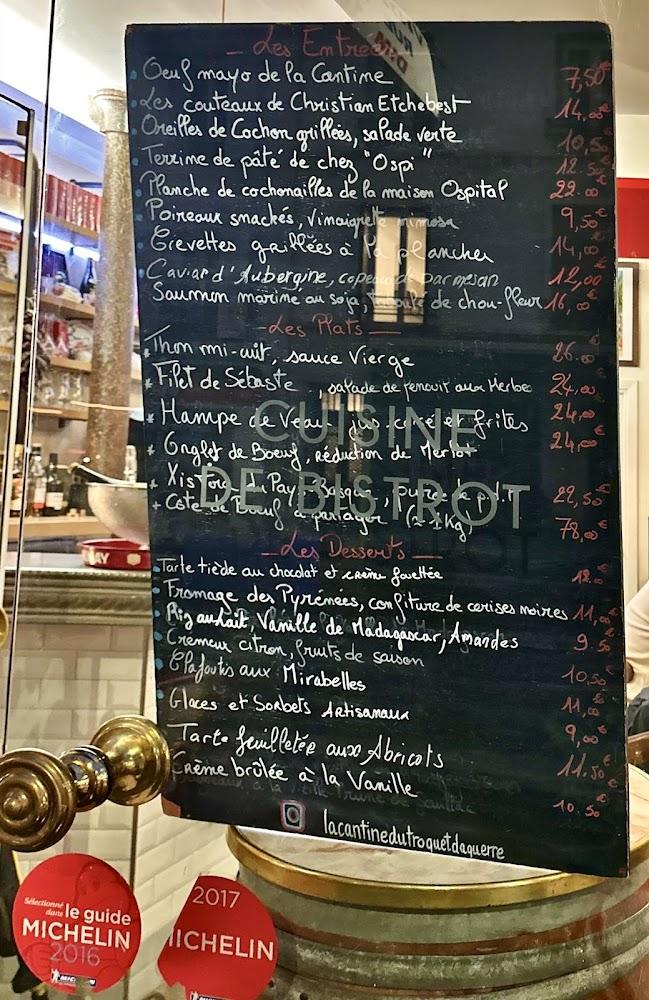 Les Entrées
Oeuf mayo de la Cantine 7,50
Les couteaux de Christian Etchebest 14,00€
Oreilles de Cochon grillées, salade verte 10,50
Terrine de pâté de chez "Ospi" 12.50€
Planche de cochonailles de la maison Ospital 22.00€
Poireaux smackés, vinaigrette mimosa 9,50€
Crevettes grillées à la plancha 14,00€
Caviar d'Aubergine, copeaux de Parmesan 12,00
Saumon mariné au soja, taboulé de chou-fleur 16,00€
Les Plats
Thon mi-cuit, sauce Vierge 26.00
Filet de Sébaste, salade de fenouil aux Herbes 24,00€
Hampe de Veau, jus corsé et frites 24,00€
Onglet de Boeuf, réduction de Merlot 24,00€
Xistora du Pays Basque, purée de p.d.t 22,50€
Côte de Boeuf à partager (≈ 1kg) 78,00€
CUISINE
DE BISTROT
Les Desserts
Tarte tiède au chocolat et crème fouettée 12.00
Fromage des Pyrénées, confiture de cerises noires 11,00€
Riz au lait, Vanille de Madagascar, Amandes 9.50
Crémeux citron, fruits de saison 10,50€
Clafoutis aux Mirabelles 11,00€
Glaces et Sorbets Artisanaux 9,00€
Tarte feuilletée aux Abricots 11.50€
Crème brûlée à la Vanille 10.50
lacantinedutroquetdaguerre
Sélectionné
dans le guide
MICHELIN
2016
2017
MICHELIN